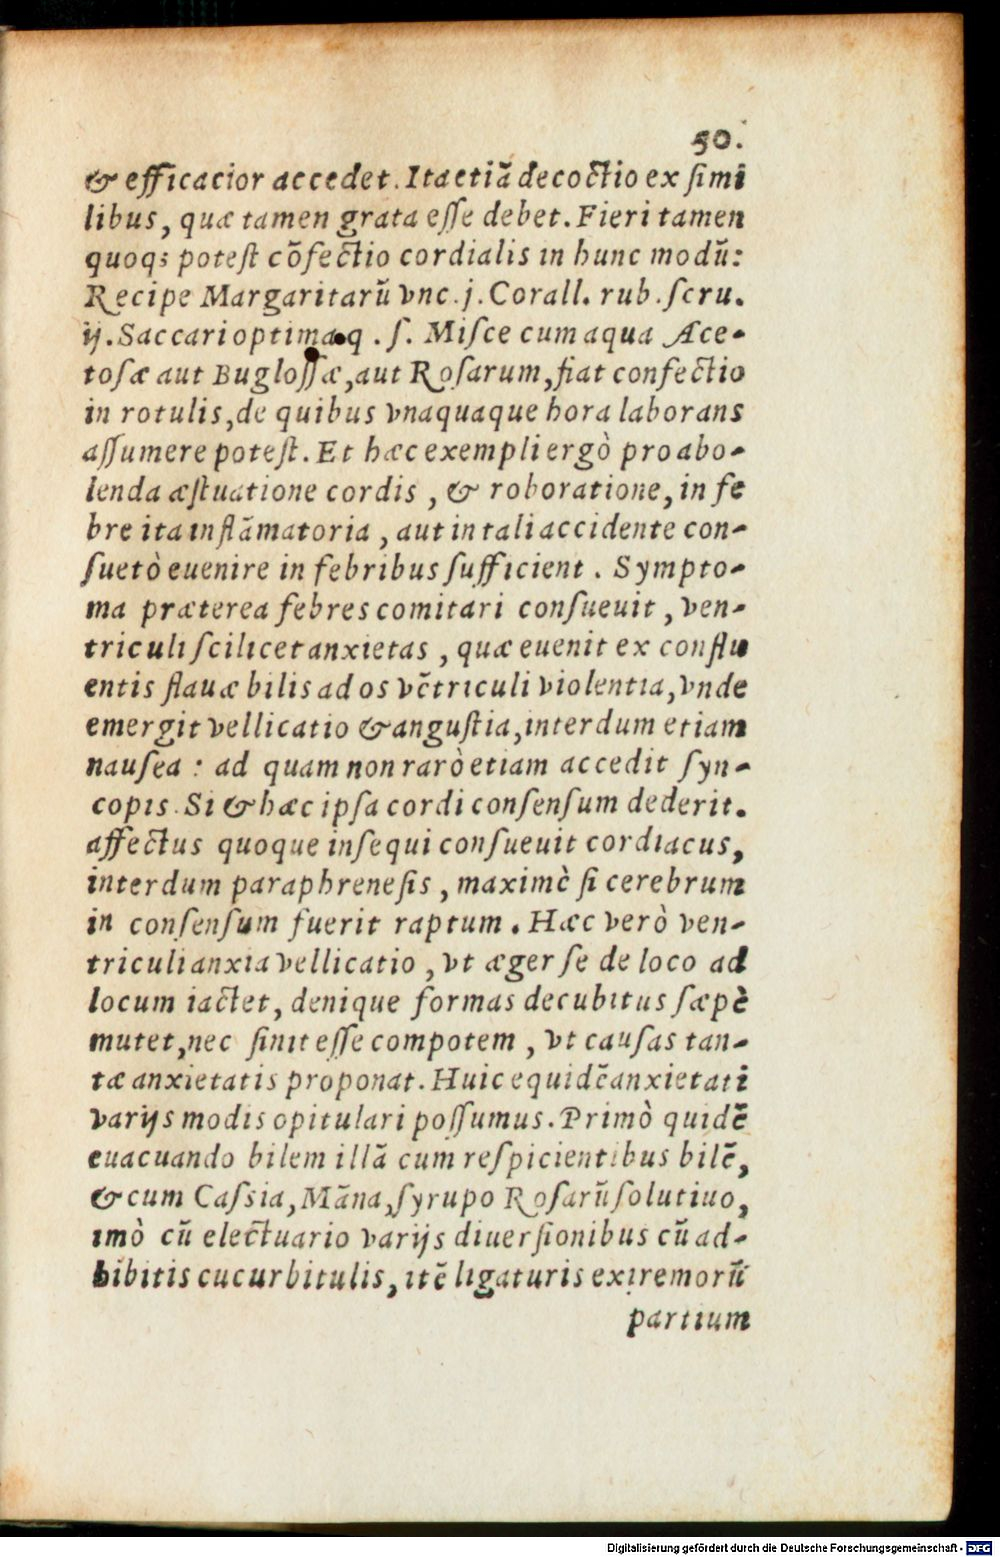 50.
& efficacior accedet. Ita etiã decoctio ex simi
libus, quæ tamen grata esse debet. Fieri tamen
quoq; potest cõfectio cordialis in hunc modũ:
Recipe Margaritarũ vnc. j. Corall. rub. scru.
ij. Saccari optima q. s. Misce cum aqua Ace-
tosæ aut Buglossæ, aut Rosarum, fiat confectio
in rotulis, de quibus vnaquaque hora laborans
assumere potest. Et hæc exempli ergò pro abo-
lenda æstuatione cordis, & roboratione, in fe
bre ita inflãmatoria, aut in tali accidente con-
suetò euenire in febribus sufficient. Sympto-
ma præterea febres comitari consueuit, ven-
triculi scilicet anxietas, quæ euenit ex conflu
entis flauæ bilis ad os vẽtriculi violentia, vnde
emergit vellicatio & angustia, interdum etiam
nausea: ad quam non rarò etiam accedit syn-
copis. Si & hæc ipsa cordi consensum dederit.
affectus quoque insequi consueuit cordiacus,
interdum paraphrenesis, maximè si cerebrum
in consensum fuerit raptum. Hæc verò ven-
triculi anxia vellicatio, vt æger se de loco ad
locum iactet, denique formas decubitus sæpè
mutet, nec sinit esse compotem, vt causas tan-
tæ anxietatis proponat. Huic equidẽ anxietati
varijs modis opitulari possumus. Primò quidẽ
euacuando bilem illã cum respicientibus bilẽ,
& cum Cassia, Mãna, syrupo Rosarũ solutiuo,
imò cũ electuario varijs diuersionibus cũ ad-
hibitis cucurbitulis, itẽ ligaturis extremorũ
partium
Digitalisierung gefördert durch die Deutsche Forschungsgemeinschaft - DFG